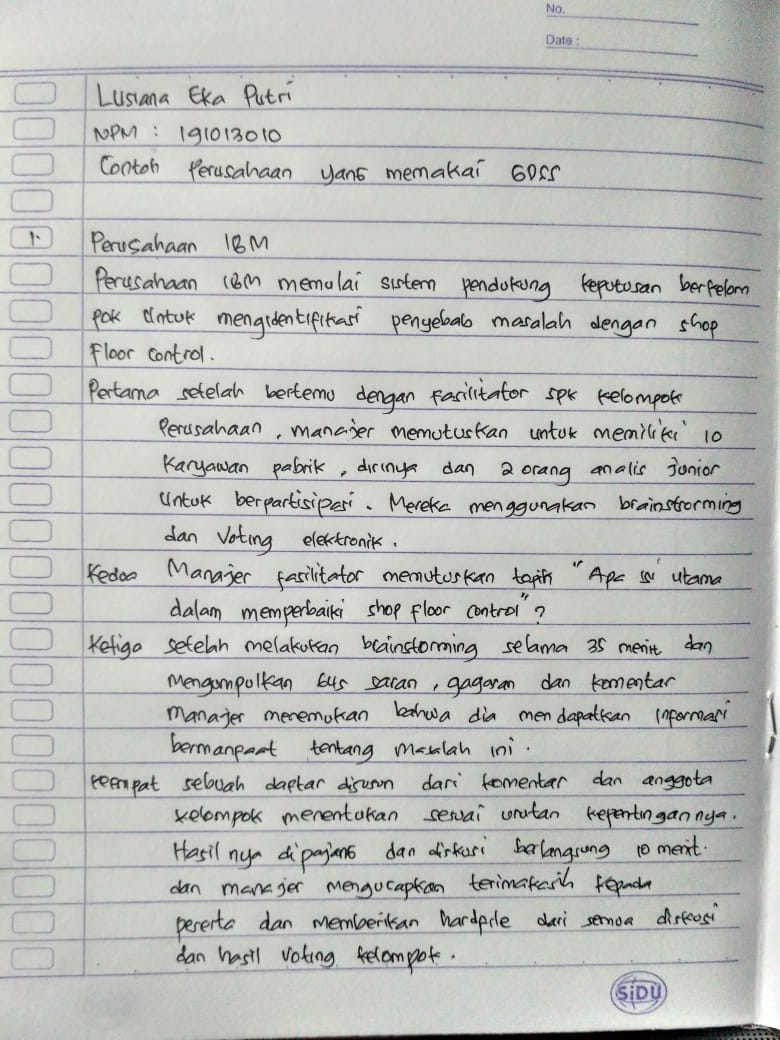 No.
Date :
Lusiana Eka Putri
NPM : 191013010
Contoh Perusahaan yang memakai GDSS
1. Perusahaan IBM
Perusahaan IBM memulai sistem pendukung keputusan berkelom
pok Untuk mengidentifikasi penyebab masalah dengan shop
Floor control.
Pertama setelah bertemu dengan fasilitator spk kelompok
Perusahaan, manajer memutuskan untuk memiliki 10
Karyawan pabrik, dirinya dan 2 orang analis junior
Untuk berpartisipasi. Mereka menggunakan brainstrorming
dan Voting elektronik.
Kedua Manajer fasilitator memutuskan topik "Apa isi utama
dalam memperbaiki shop floor control"?
Ketiga setelah melakukan brainstorming selama 35 menit dan
Mengumpulkan 645 saran, gagasan dan komentar
Manajer menemukan bahwa dia mendapatkan Informasi
bermanpaat tentang masalah ini.
Keempat sebuah daftar disusun dari komentar dan anggota
Kelompok menentukan sesuai urutan kepentingannya.
Hasil nya dipajang dan diskusi berlangsung 10 menit.
dan manajer mengucapkan terimakasih kepada
peserta dan memberikan hardfile dari semua diskusi
dan hasil Voting kelompok.
SiDU